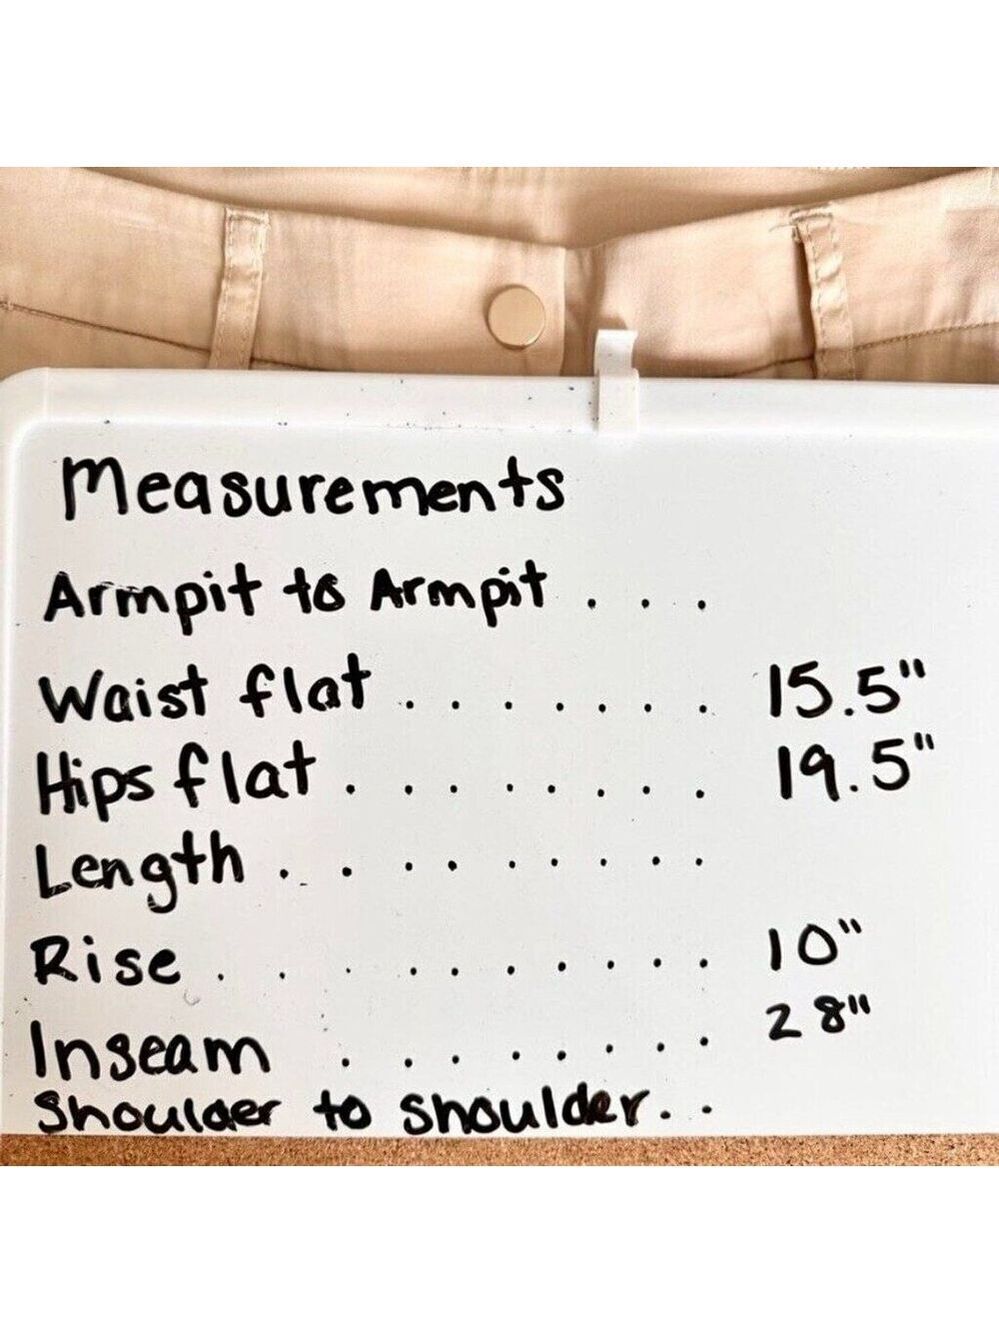 Measurements
Armpit to Armpit . . .
Waist flat . . . . . . . 15.5"
Hips flat . . . . . . . . 19.5"
Length . . . . . . . . .
Rise . . . . . . . . . . 10"
Inseam . . . . . . . . 28"
Shoulder to shoulder. .